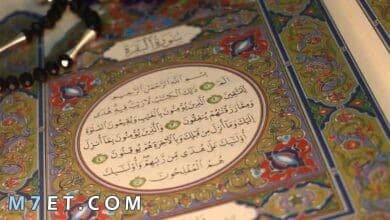 سورة البقرة
بسم الله الرحمن الرحيم
الم ذلك الكتاب لا ريب فيه هدى
للمتقين الذين يؤمنون بالغيب ويقيمون الصلاة
ومما رزقناهم ينفقون والذين يؤمنون بما أنزل
إليك وما أنزل من قبلك وبالآخرة هم يوقنون
أولئك على هدى من ربهم وأولئك
هم المفلحون
M7ET.COM